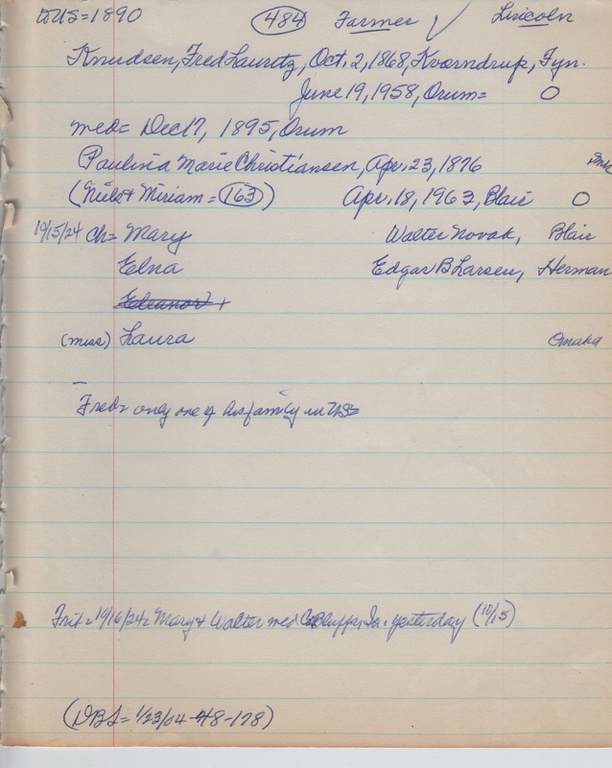 to US=1890 484 Farmer ✓ Lincoln
Knudsen, Fred Lauretz, Oct. 2, 1868, Kvorndrup, Fyn.
June 19, 1958, Orum= O
med= Dec 17, 1895, Orum
Paulina Marie Christiansen, Apr. 23, 1876
(Niels + Miriam = 163) Apr. 18, 1963, Blair O
10/15/24 Ch= Mary Walter Novak, Blair
Elna Edgar B Larsen, Herman
Eleanor +
(miss) Laura Omaha
Fred= only one of his family in US=
10/16/24= Mary + Walter med C Bluffs, Ia. yesterday (10/15)
(DBL= 1/23/04-48-178)